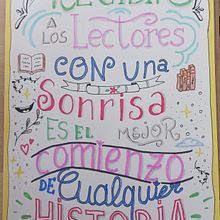 RECIBIR
A LOS LECTORES
CON UNA
SONRISA
ES EL MEJOR
comienzo
DE Cualquier
HISTORIA